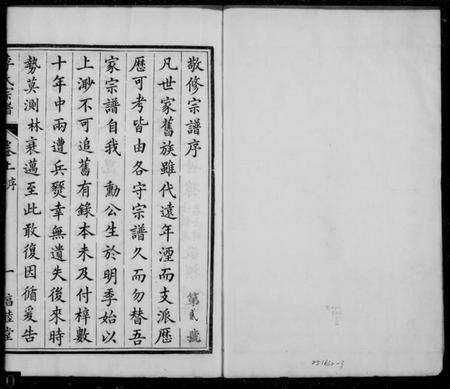 敬修宗譜序
第貳號
凡世家舊族雖代遠年湮而支派歷
歷可考皆由各守宗譜久而勿替吾
家宗譜自我 勳公生於明季始以
上渺不可追舊有錄本未及付梓數
十年中兩遭兵燹幸無遺失後來時
勢莫測林衰邁至此敢復因循爰告
李氏宗譜
卷上序
一
睦堂